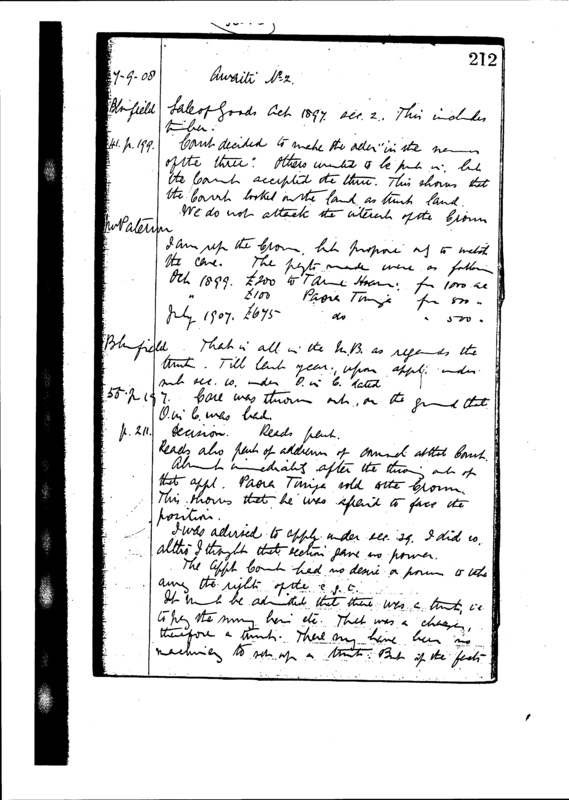 212
7-9-08 Awaiti No 2.
Blomfield Sale of Goods Act 1897 sec. 2. This includes
timber.
41. p. 199. Court decided to make the order "in the names
of the three". Others wanted to be put in, but
the Court accepted the three. This shows that
the Court looked on the land as trust land.
We do not attack the interests of the Crown
Mr Paterson
I am rep. the Crown, but propose only to watch
the case. The payts made were as follows
Oct 1899. £200 to Tame for 1000 ac
" £100 Paora Tunge for 500 "
July 1907. £675 do " 500 "
Blomfield That is all in the M.B. as regards the
trust. Till last year, upon appl. under
sub sec. 10, under O. in C. dated
55. p. 197. Case was thrown out, on the ground that
O. in C. was bad.
p. 211. Decision. Reads part.
Reads also part of address of counsel at that Court.
Almost immediately after the throwing out of
that appl. Paora Tunge sold to the Crown.
This shows that he was afraid to face the
position.
I was advised to apply under sec. 39. I did so,
altho I thought that section gave no power.
The Appt Court had no desire or power to take
away the rights of the
It must be admitted that there was a trust, i.e.
to pay the survey lien etc. That was a charge,
therefore a trust. There may have been no
machinery to set up a trust. But if the facts